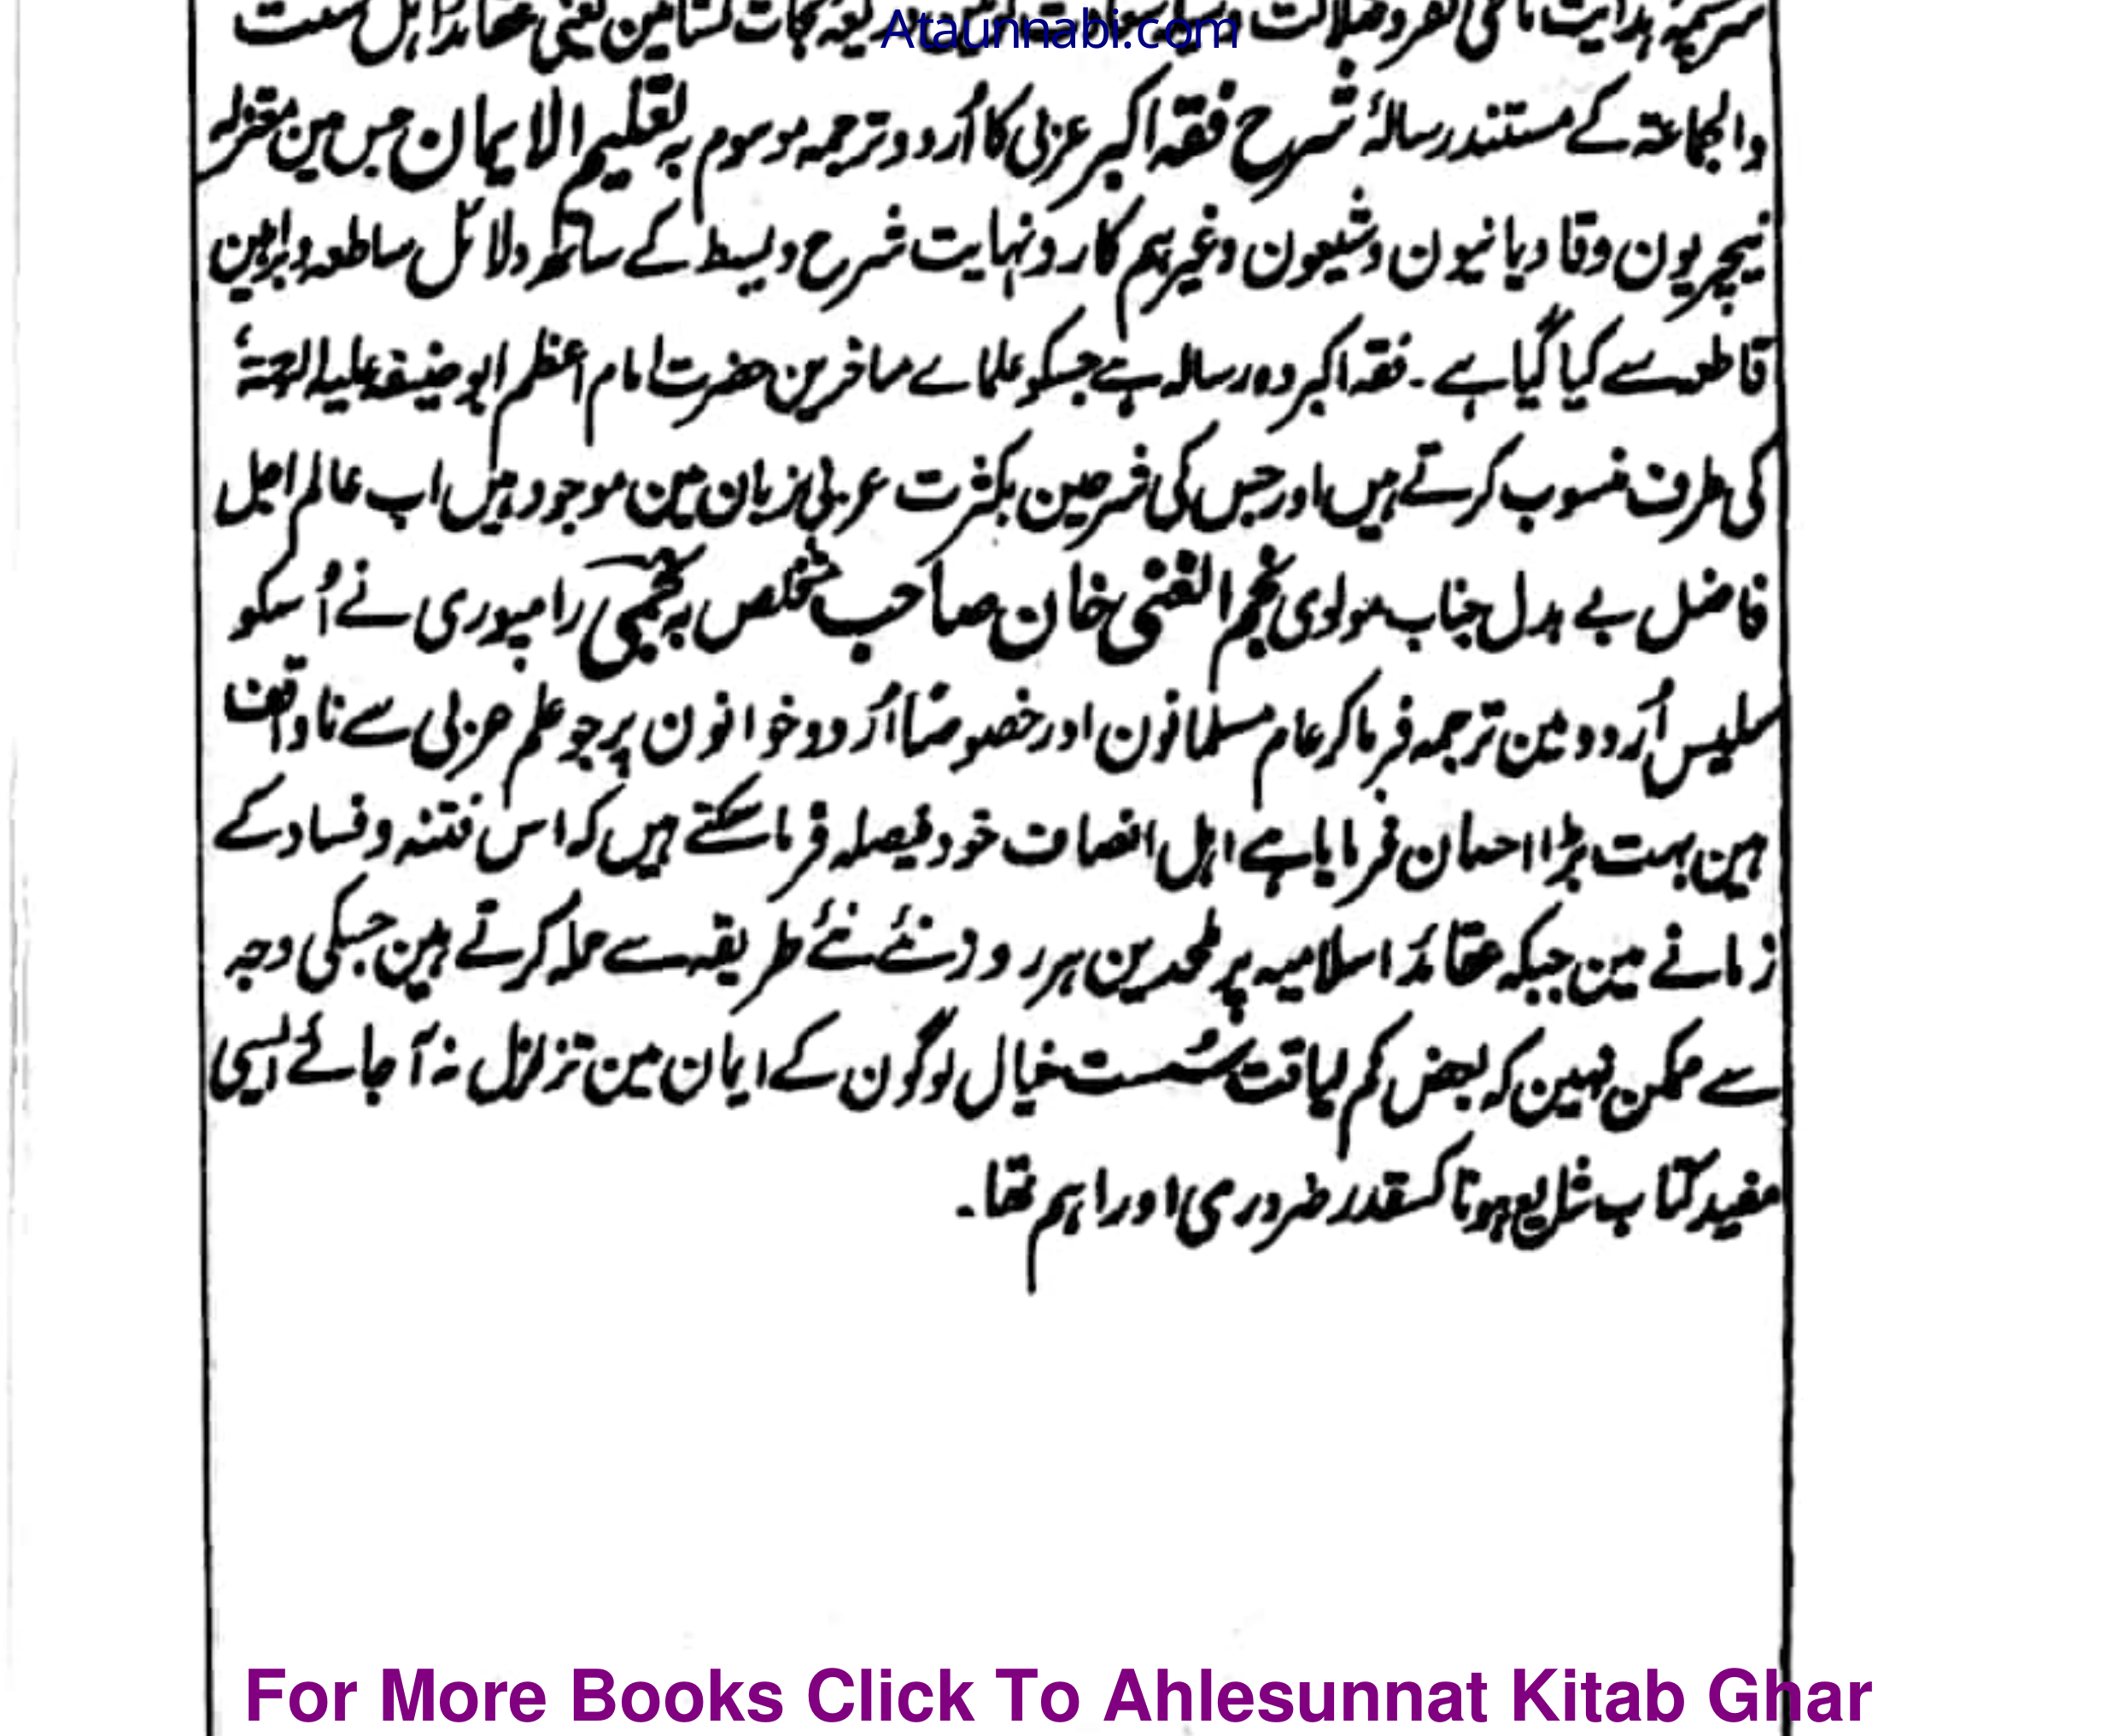 Ataunnabi.com
سرچشمہ ہدایت ماحی کفر و ضلالت یعنی عقائد اہل سنت
والجماعۃ کے مستند رسالۂ شرح فقہ اکبر عربی کا اُردو ترجمہ موسوم بہ تعلیم الایمان جس مین معتزلہ
نیچریون وقادیانیون وشیعون وغیرہم کا رد نہایت شرح وبسط کے ساتھ دلائل ساطعہ وبراہین
قاطعہ سے کیا گیا ہے ۔ فقہ اکبر وہ رسالہ ہے جسکو علماے متاخرین حضرت امام اعظم ابوحنیفہ علیہ الرحمۃ
کی طرف منسوب کرتے ہیں اور جس کی شرحین بکثرت عربی زبان مین موجود ہیں اب عالم اجل
فاضل بے بدل جناب مولوی نجم الغنی خان صاحب متخلص بہ نجمی رامپوری نے اُسکو
سلیس اُردو مین ترجمہ فرما کر عام مسلمانون اور خصوصًا اُردو خوانون پر جو علم عربی سے ناواقف
ہین بہت بڑا احسان فرمایا ہے اہل انصاف خود فیصلہ فرما سکتے ہیں کہ اس فتنہ وفساد کے
زمانے مین جبکہ عقائد اسلامیہ پر ملحدین ہر روز نئے نئے طریقہ سے حملہ کرتے ہین جسکی وجہ
سے ممکن نہین کہ بعض کم لیاقت سُست خیال لوگون کے ایمان مین تزلزل نہ آ جائے ایسی
مفید کتاب شایع ہونا کسقدر ضروری اور اہم تھا۔
For More Books Click To Ahlesunnat Kitab Ghar